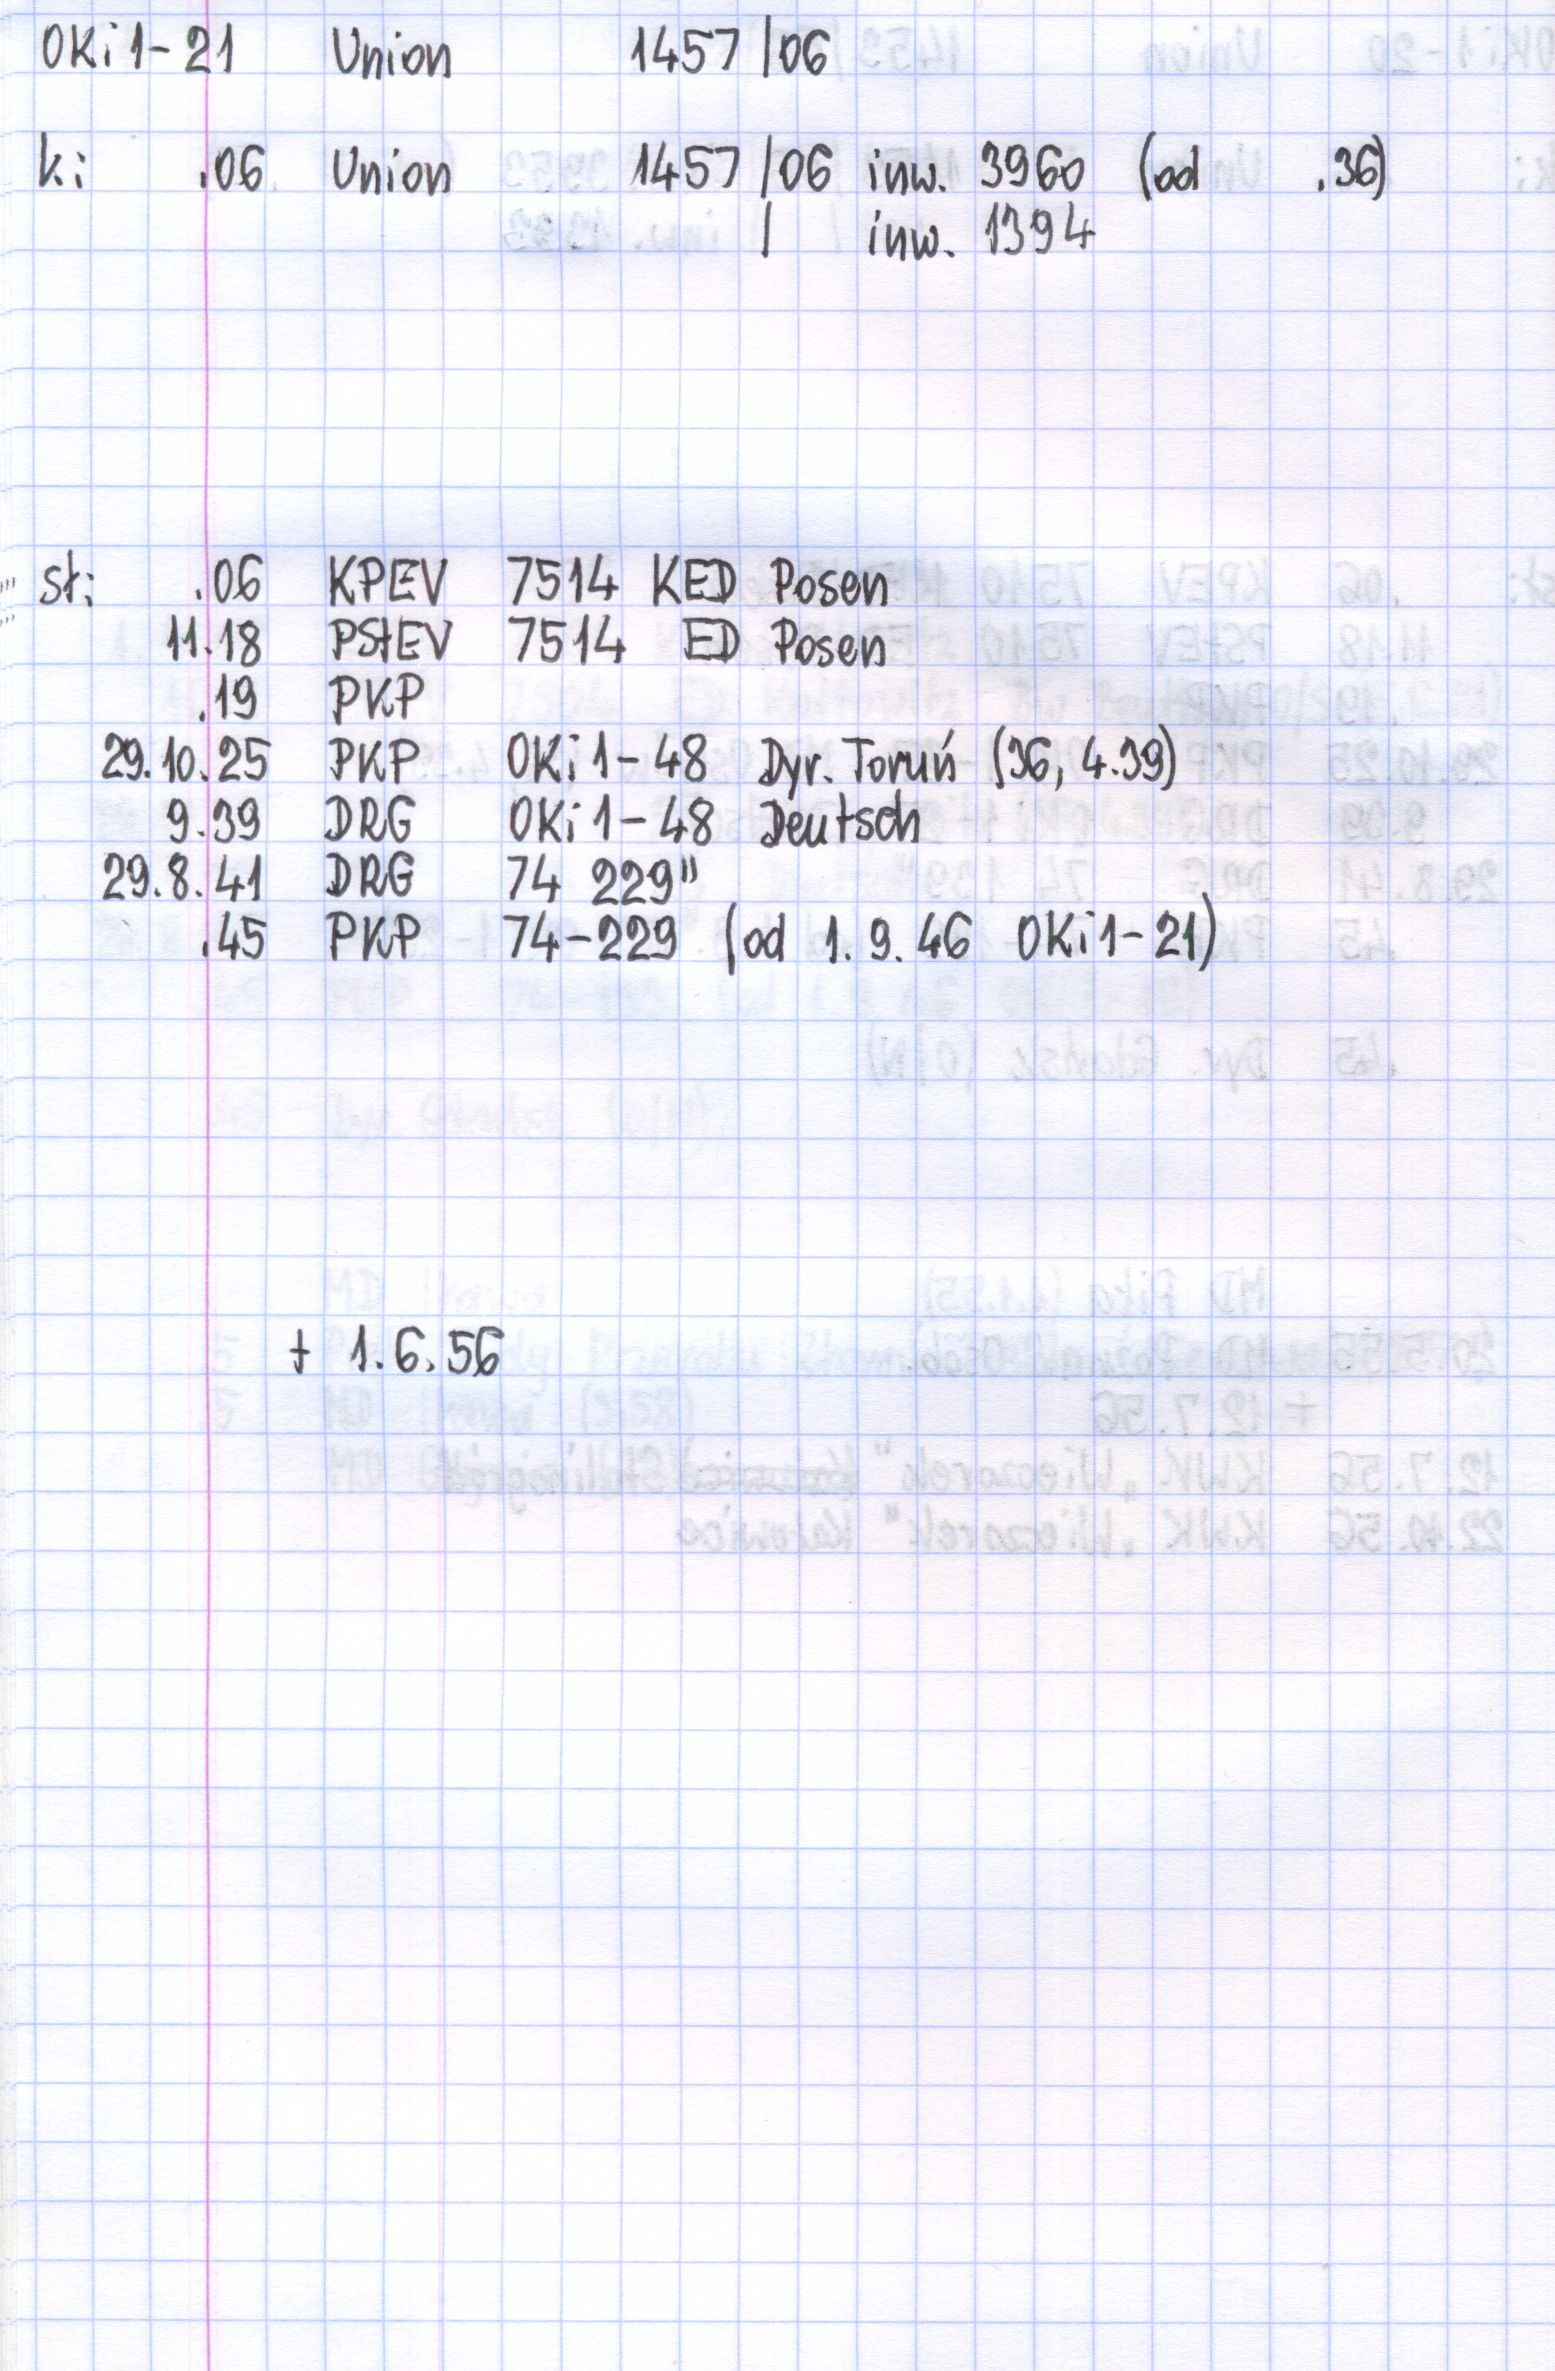 OKi1-21 Union 1457/06
k: .06 Union 1457/06 inw. 3960 (od .36)
/ inw. 1394
st: .06 KPEV 7514 KED Posen
11.18 PStEV 7514 ED Posen
.19 PKP
29.10.25 PKP OKi1-48 Dyr. Toruń (36, 4.39)
9.39 DRG OKi1-48 Deutsch
29.8.41 DRG 74 229"
.45 PKP 74-229 (od 1.9.46 OKi1-21)
+ 1.6.56